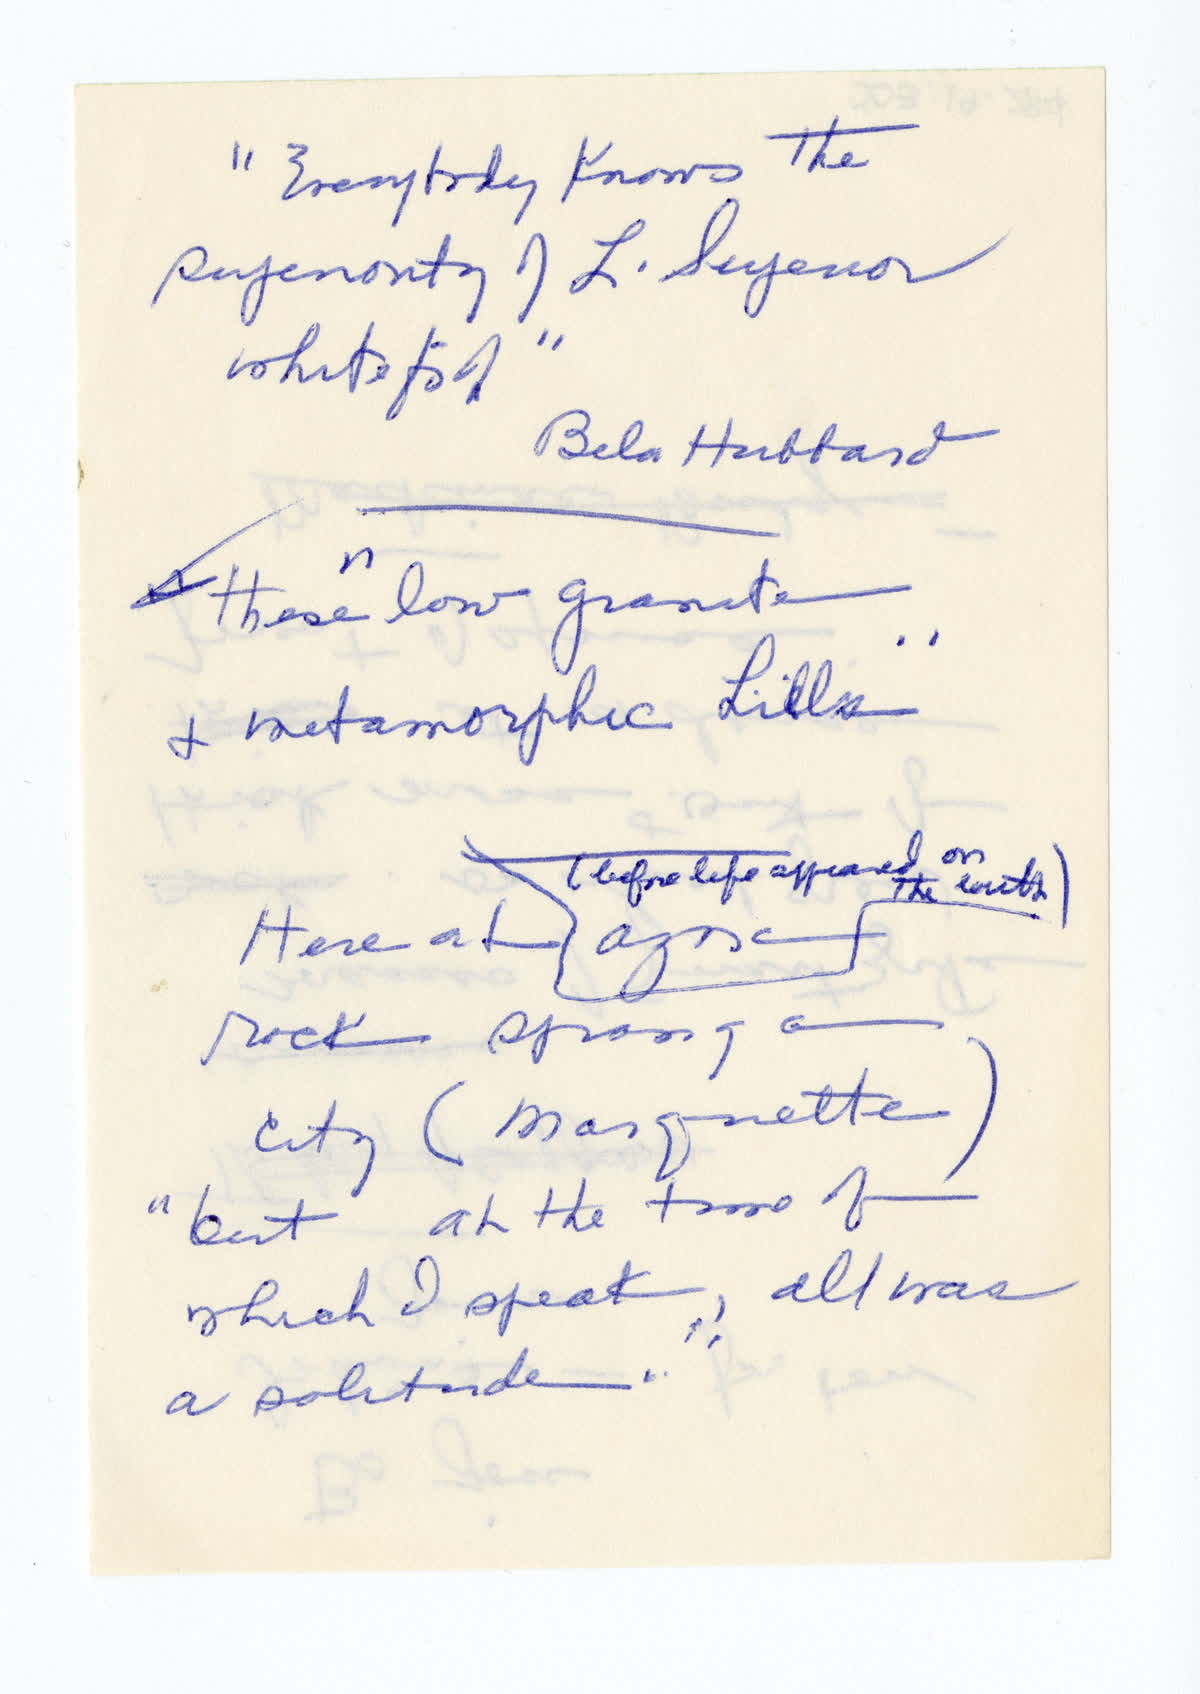 "Everybody Knows the
superiority of L. Superior
whitefish"
Bela Hubbard
"these low granite
& metamorphic hills"
(before life appeared on
the earth)
Here at azoic
rock sprang a
city (Marquette)
"but at the time of
which I speak, all was
a solitude."